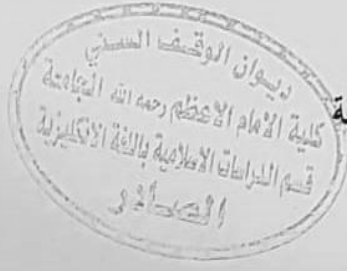 ديوان الوقف السني
كلية الامام الاعظم رحمه الله الجامعة
قسم الدراسات الاسلامية باللغة الانكليزية
الصادر
ة